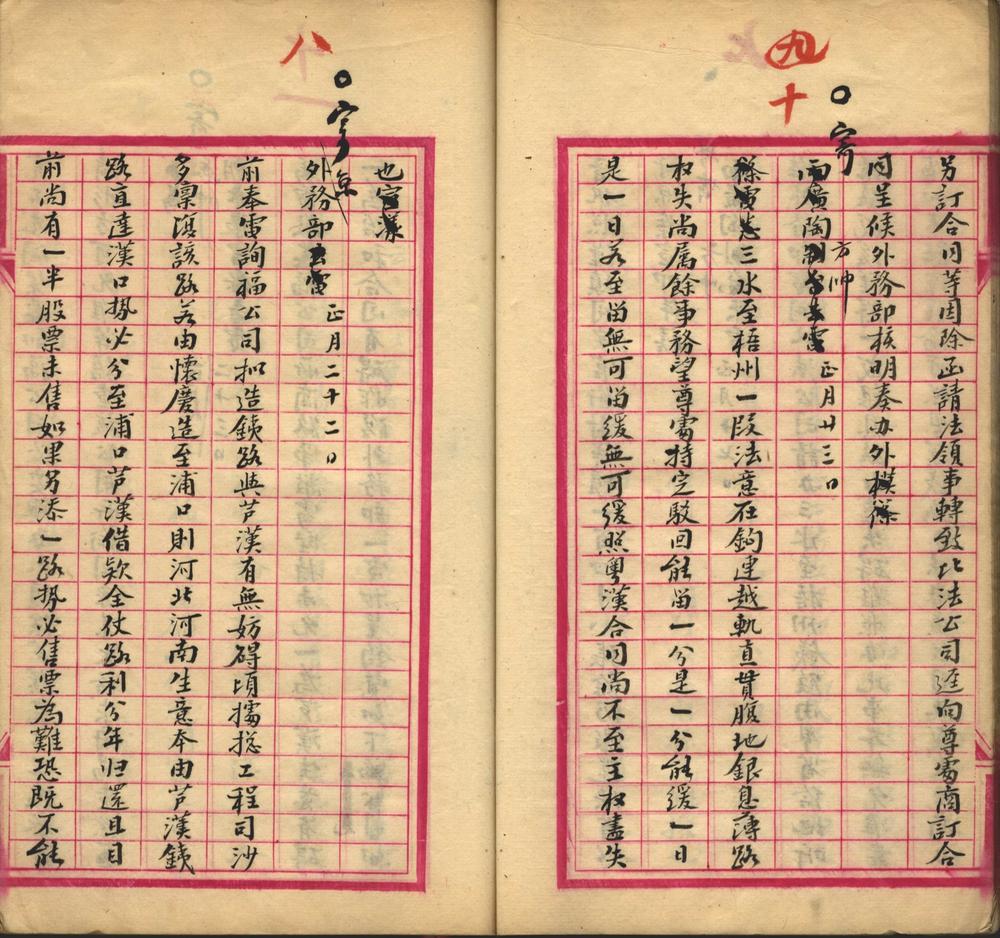 另訂合同等因除函請法領事轉致比法公司逕向尊處商訂合
同呈候外務部核明奏办外
四十
寄
兩廣陶方帅正月廿三日
三水至梧州一段法意在鉤連越軌直貫腹地銀息薄路
权失尚属餘事務望尊處持定駁回能畄一分是一分能緩一日
是一日若至畄無可畄緩無可緩照粵漢合同尚不至主权盡失
也
八
寄京
外務部正月二十二日
前奉電詢福公司拟造鉄路與芦漢有無妨碍頃據揔工程司沙
多稟復該路若由懷慶造至浦口則河北河南生意本由芦漢鉄
路直達漢口勢必分至浦口芦漢借欵全仗路利分年归還且目
前尚有一半股票未售如果另添一路勢必售票為難恐既不能